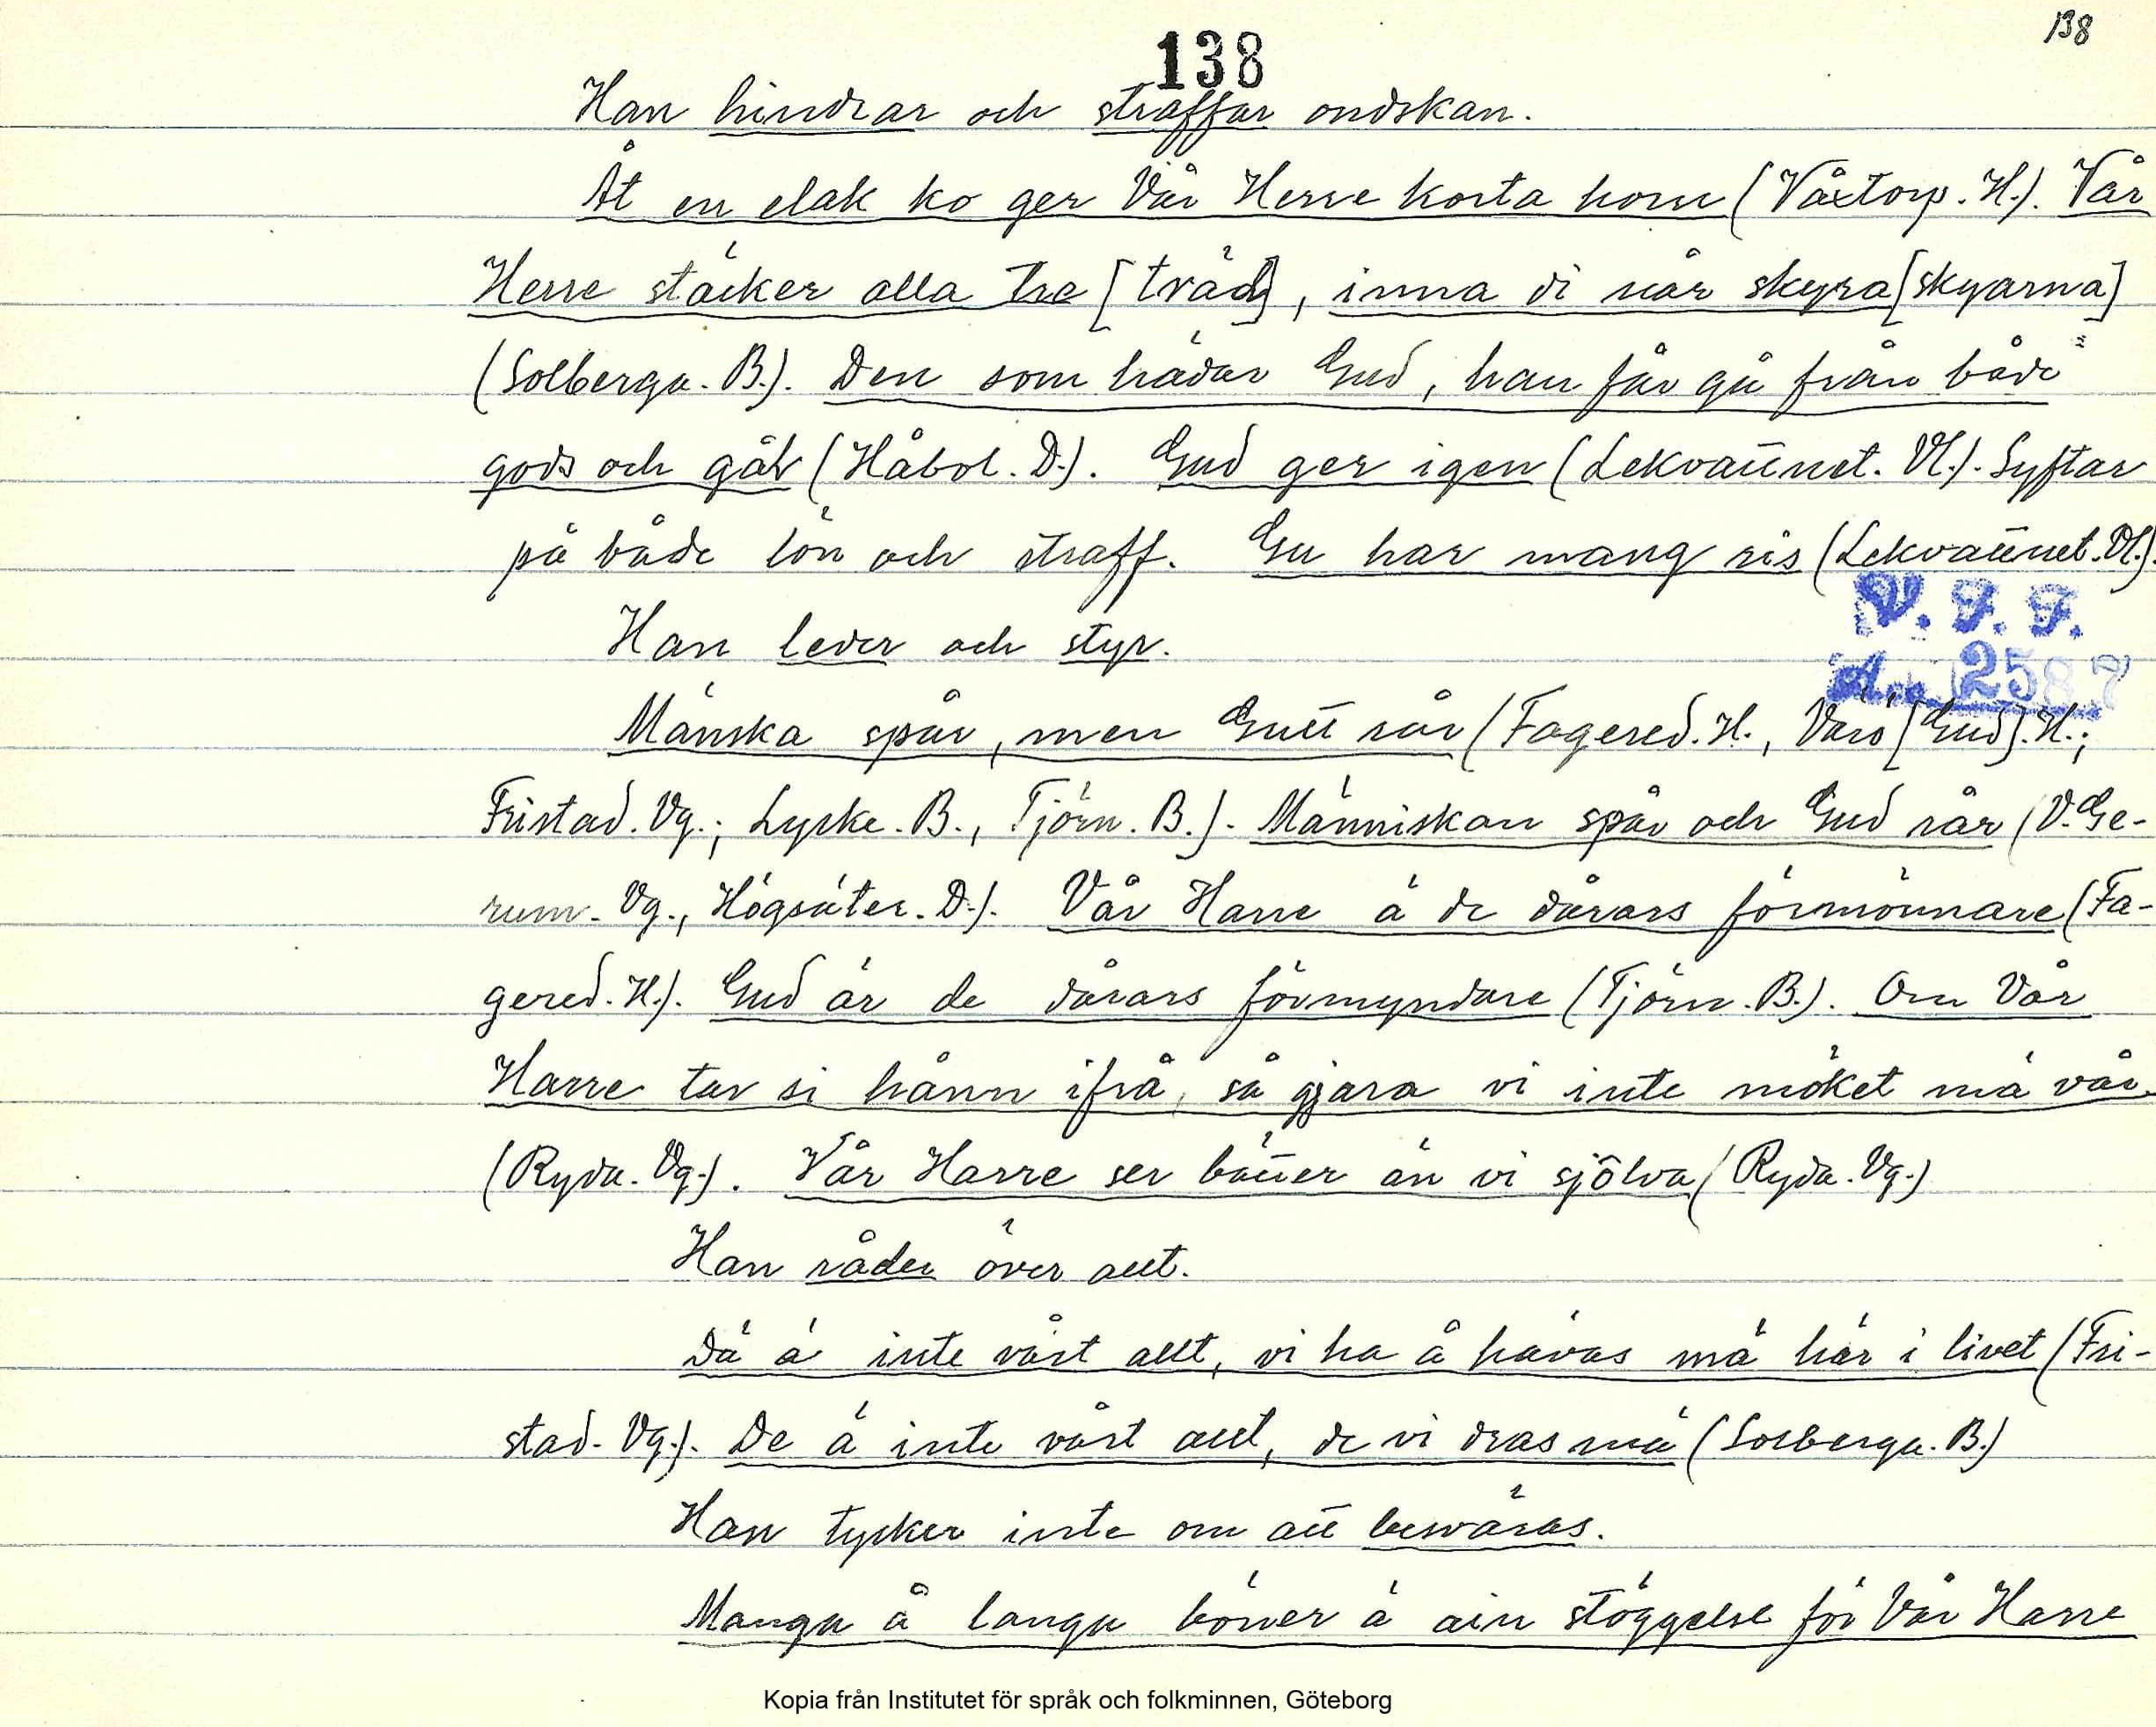 138
138
Han hindrar och straffar ondskan.
Åt en elak ko ger Vår Herre korta horn (Våxtorp. H.). Vår
Herre stäcker alla tre [träd], inna di når skyra [skyarna]
(Solberga. B.). Den som hädar Gud, han får gå från både
gods och går (Håbol. D.). Gud ger igen (Lekvattnet. Vl.). Syftar
på både lön och straff. Gu har mang ris (Lekvattnet. Vl.).
V. F. F.
Acc. 2587
Han leder och styr.
Mänska spår, men Gutt rår (Fagered. H., Värö [Gud]. H.;
Fristad. Vg.; Lycke. B., Tjörn. B.). Människan spår och Gud rår (V. Ge-
rum. Vg., Högsäter. D.). Vår Harre ä de dårars förmönnare (Fa-
gered. H.). Gud är de dårars förmyndare (Tjörn. B.). Om Vår
Harre tar si hånn ifrå, så gjara vi inte möket mä vår
(Ryda. Vg.). Vår Harre ser bätter än vi sjôlva (Ryda. Vg.)
Han råder över allt.
Dä ä inte vårt allt, vi ha å hävas mä här i livet (Fri-
stad. Vg.). De ä inte vårt allt, de vi dras mä (Solberga. B.)
Han tycker inte om att besväras.
Manga å langa böner ä ain stöggelse för Vår Harre
Kopia från Institutet för språk och folkminnen, Göteborg